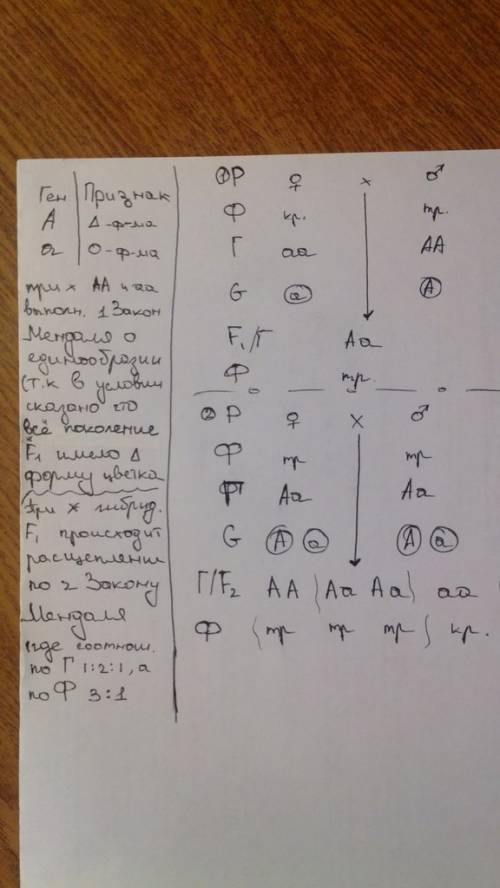 Ген | Признак
А | Δ-ф-ма
а | О-ф-ма
при × АА и аа
выполн. 1 Закон
Менделя о
единообразии
(т.к в условии
сказано что
всё поколение
F₁ имело Δ
форму цветка
При × гибрид.
F₁ происходит
расщепление
по 2 Закону
Менделя
где соотнош.
по Г 1:2:1, а
по Ф 3:1
① Р ♀ × ♂
Ф кр. тр.
Г аа АА
G а А
F₁/Г Аа
Ф тр.
② Р ♀ × ♂
Ф тр тр
Г Аа Аа
G А а А а
Г/F₂ АА Аа Аа аа
Ф тр тр тр кр.